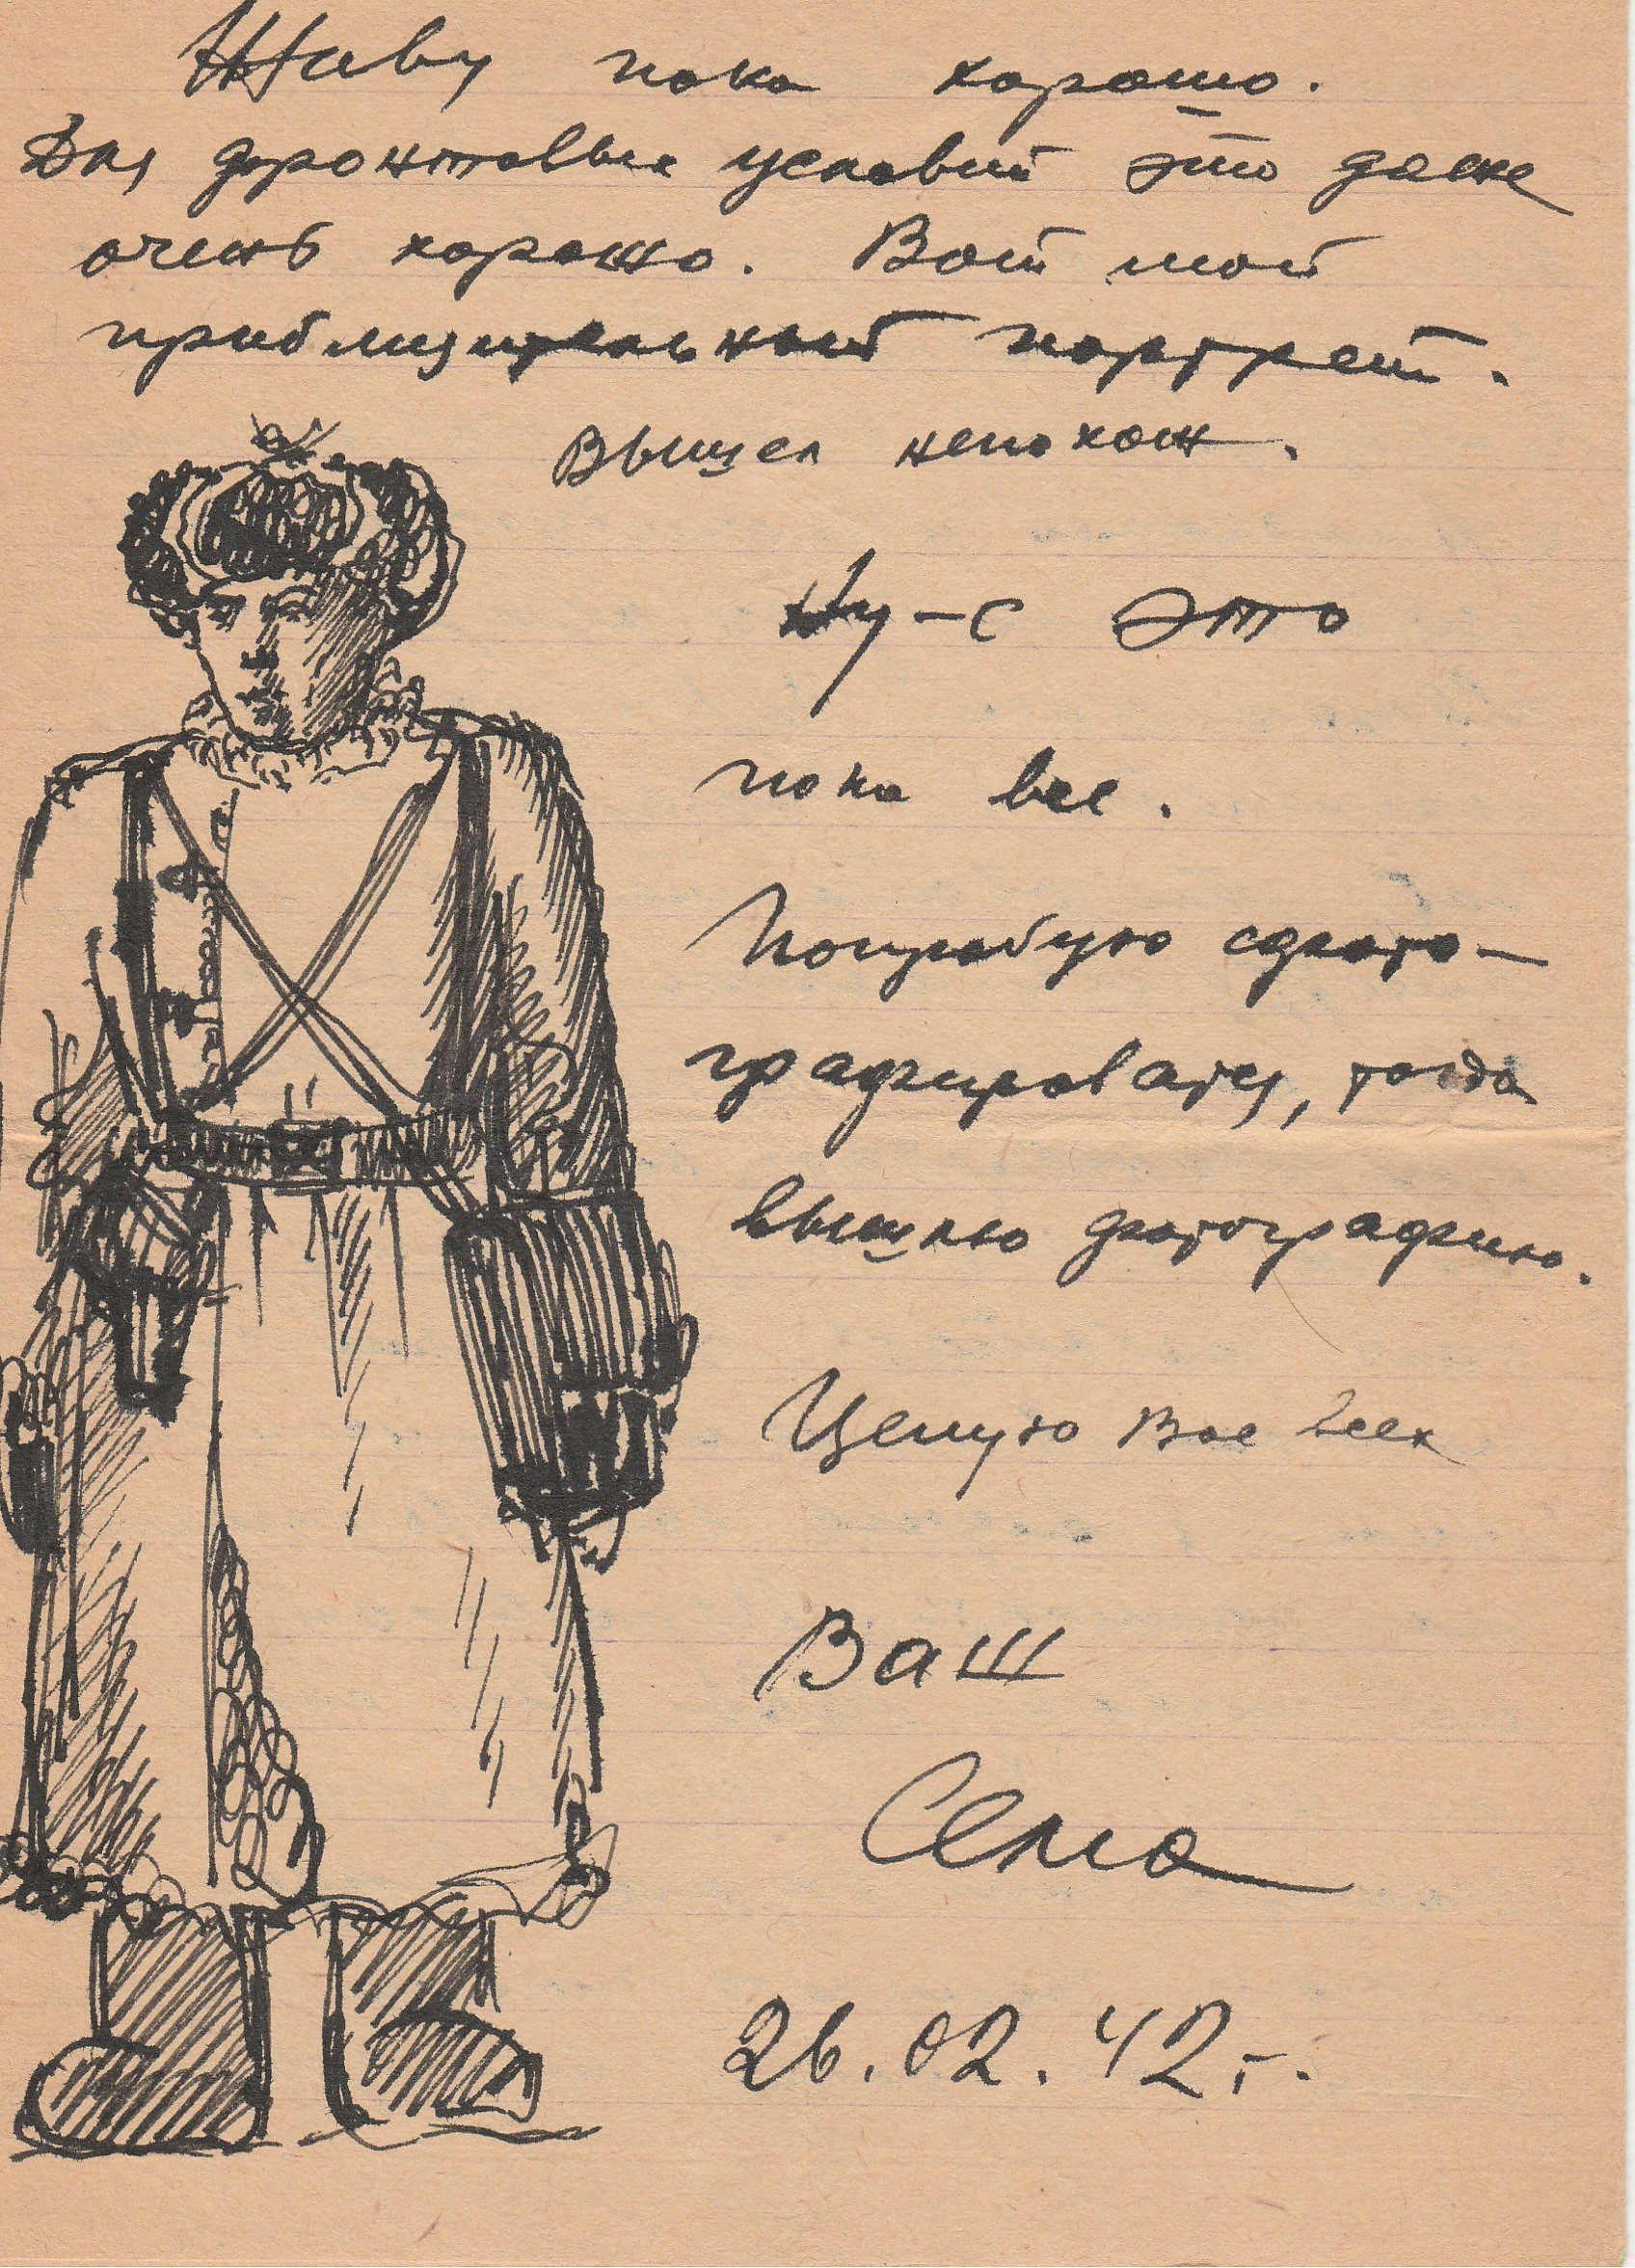 Живу пока хорошо.
Для фронтовых условий это даже
очень хорошо. Вот мой
приблизительный портрет.
Вышел непохож.
Ну-с это
пока все.
Попробую сфото-
графироваться, тогда
вышлю фотографию.
Целую Вас всех
Ваш
Сема
26.02.42 г.